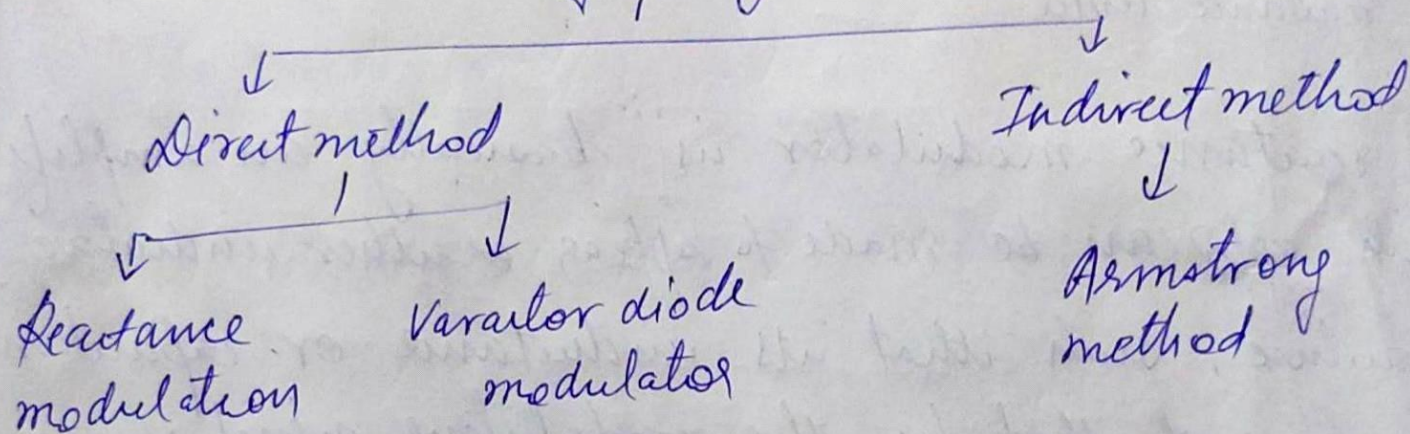 Direct method
Indirect method
Reactance
modulation
Varactor diode
modulator
Armstrong
method